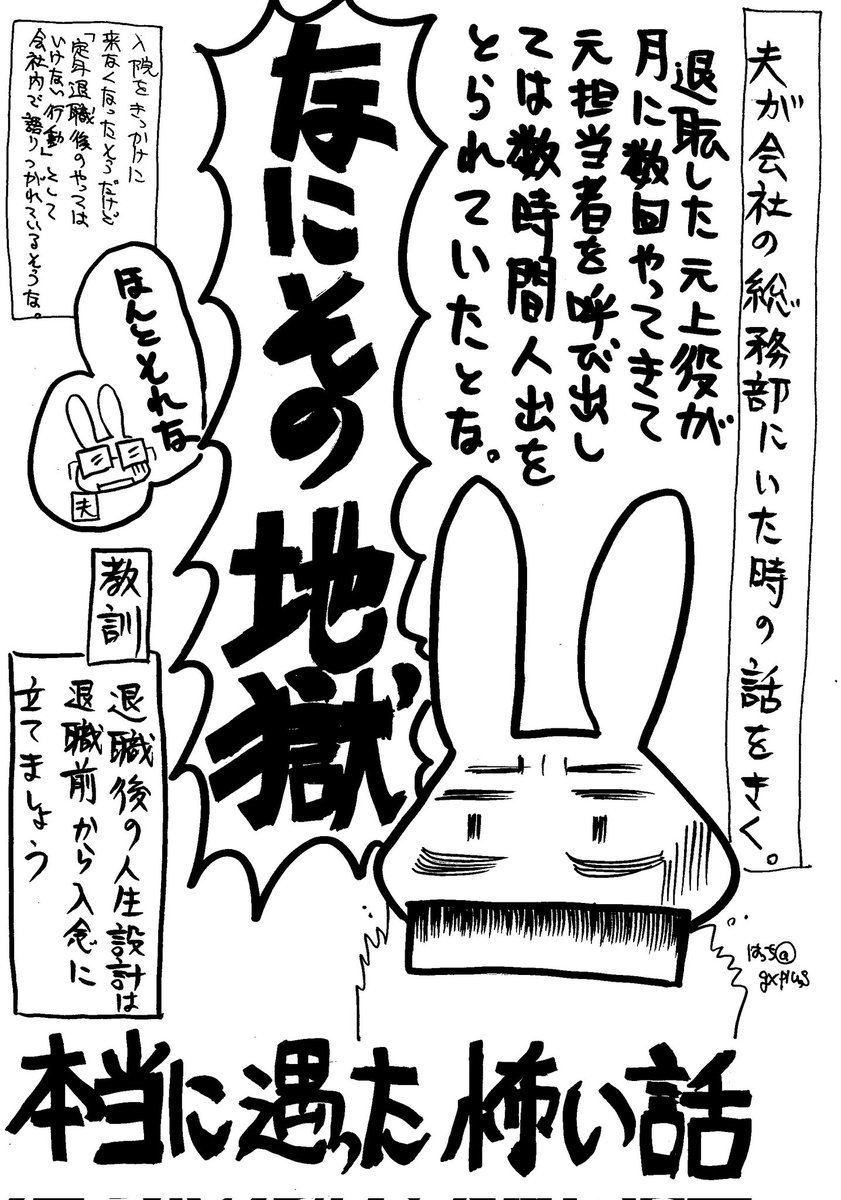 夫が会社の総務部にいた時の話をきく。
退転した元上役が
月に数回やってきて
元担当者を呼び出し
ては数時間人出を
とられていたとな。
なにその地獄
入院をきっかけに
来なくなったそうだけど
「定年退職後のやっては
いけない行動」として
会社内で語りつがれているそうな。
ほんとそれな
夫
教訓
退職後の人生設計は
退職前から入念に
立てましょう
はっち@
gxplus
本当に遇った怖い話